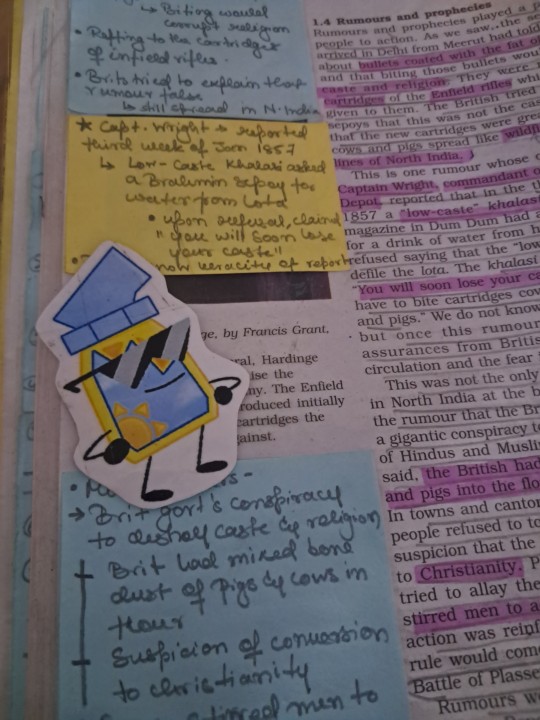 ↳ Biting would
corrupt religion
• Reffing to the cartridges
of enfield rifles.
• Brits tried to explain that
rumour false
↳ still spread in N. India
★ Capt. Wright → reported
third week of Jan 1857
↳ Low-Caste Khalasi asked
a Brahmin Sepoy for
water from Lota
• upon refusal, claimed
"you will soon lose
your caste"
know veracity of report
ge, by Francis Grant,
ral, Hardinge
ise the
ny. The Enfield
roduced initially
cartridges the
gainst.
→ Brit govt's conspiracy
to destroy caste & religion
Brit had mixed bone
dust of Pigs & cows in
flour
Suspicion of conversion
to christianity
stirred men to
1.4 Rumours and prophecies
Rumours and prophecies played a
people to action. As we saw, the se
arrived in Delhi from Meerut had told
about bullets coated with the fat of
and that biting those bullets wou
caste and religion. They were
cartridges of the Enfield rifles whi
given to them. The British tried
sepoys that this was not the cas
that the new cartridges were gre
cows and pigs spread like wildfi
lines of North India.
This is one rumour whose o
Captain Wright, commandant o
Depot, reported that in the th
1857 a "low-caste" khalas
magazine in Dum Dum had a
for a drink of water from h
refused saying that the "low
defile the lota. The khalasi
"You will soon lose your ca
have to bite cartridges cov
and pigs." We do not know
but once this rumour
assurances from British
circulation and the fear
This was not the only
in North India at the b
the rumour that the Br
a gigantic conspiracy to
of Hindus and Muslim
said, the British had
and pigs into the flo
In towns and canton
people refused to to
suspicion that the
to Christianity. P
tried to allay the
stirred men to a
action was reinf
rule would come
Battle of Plasse
Rumours w